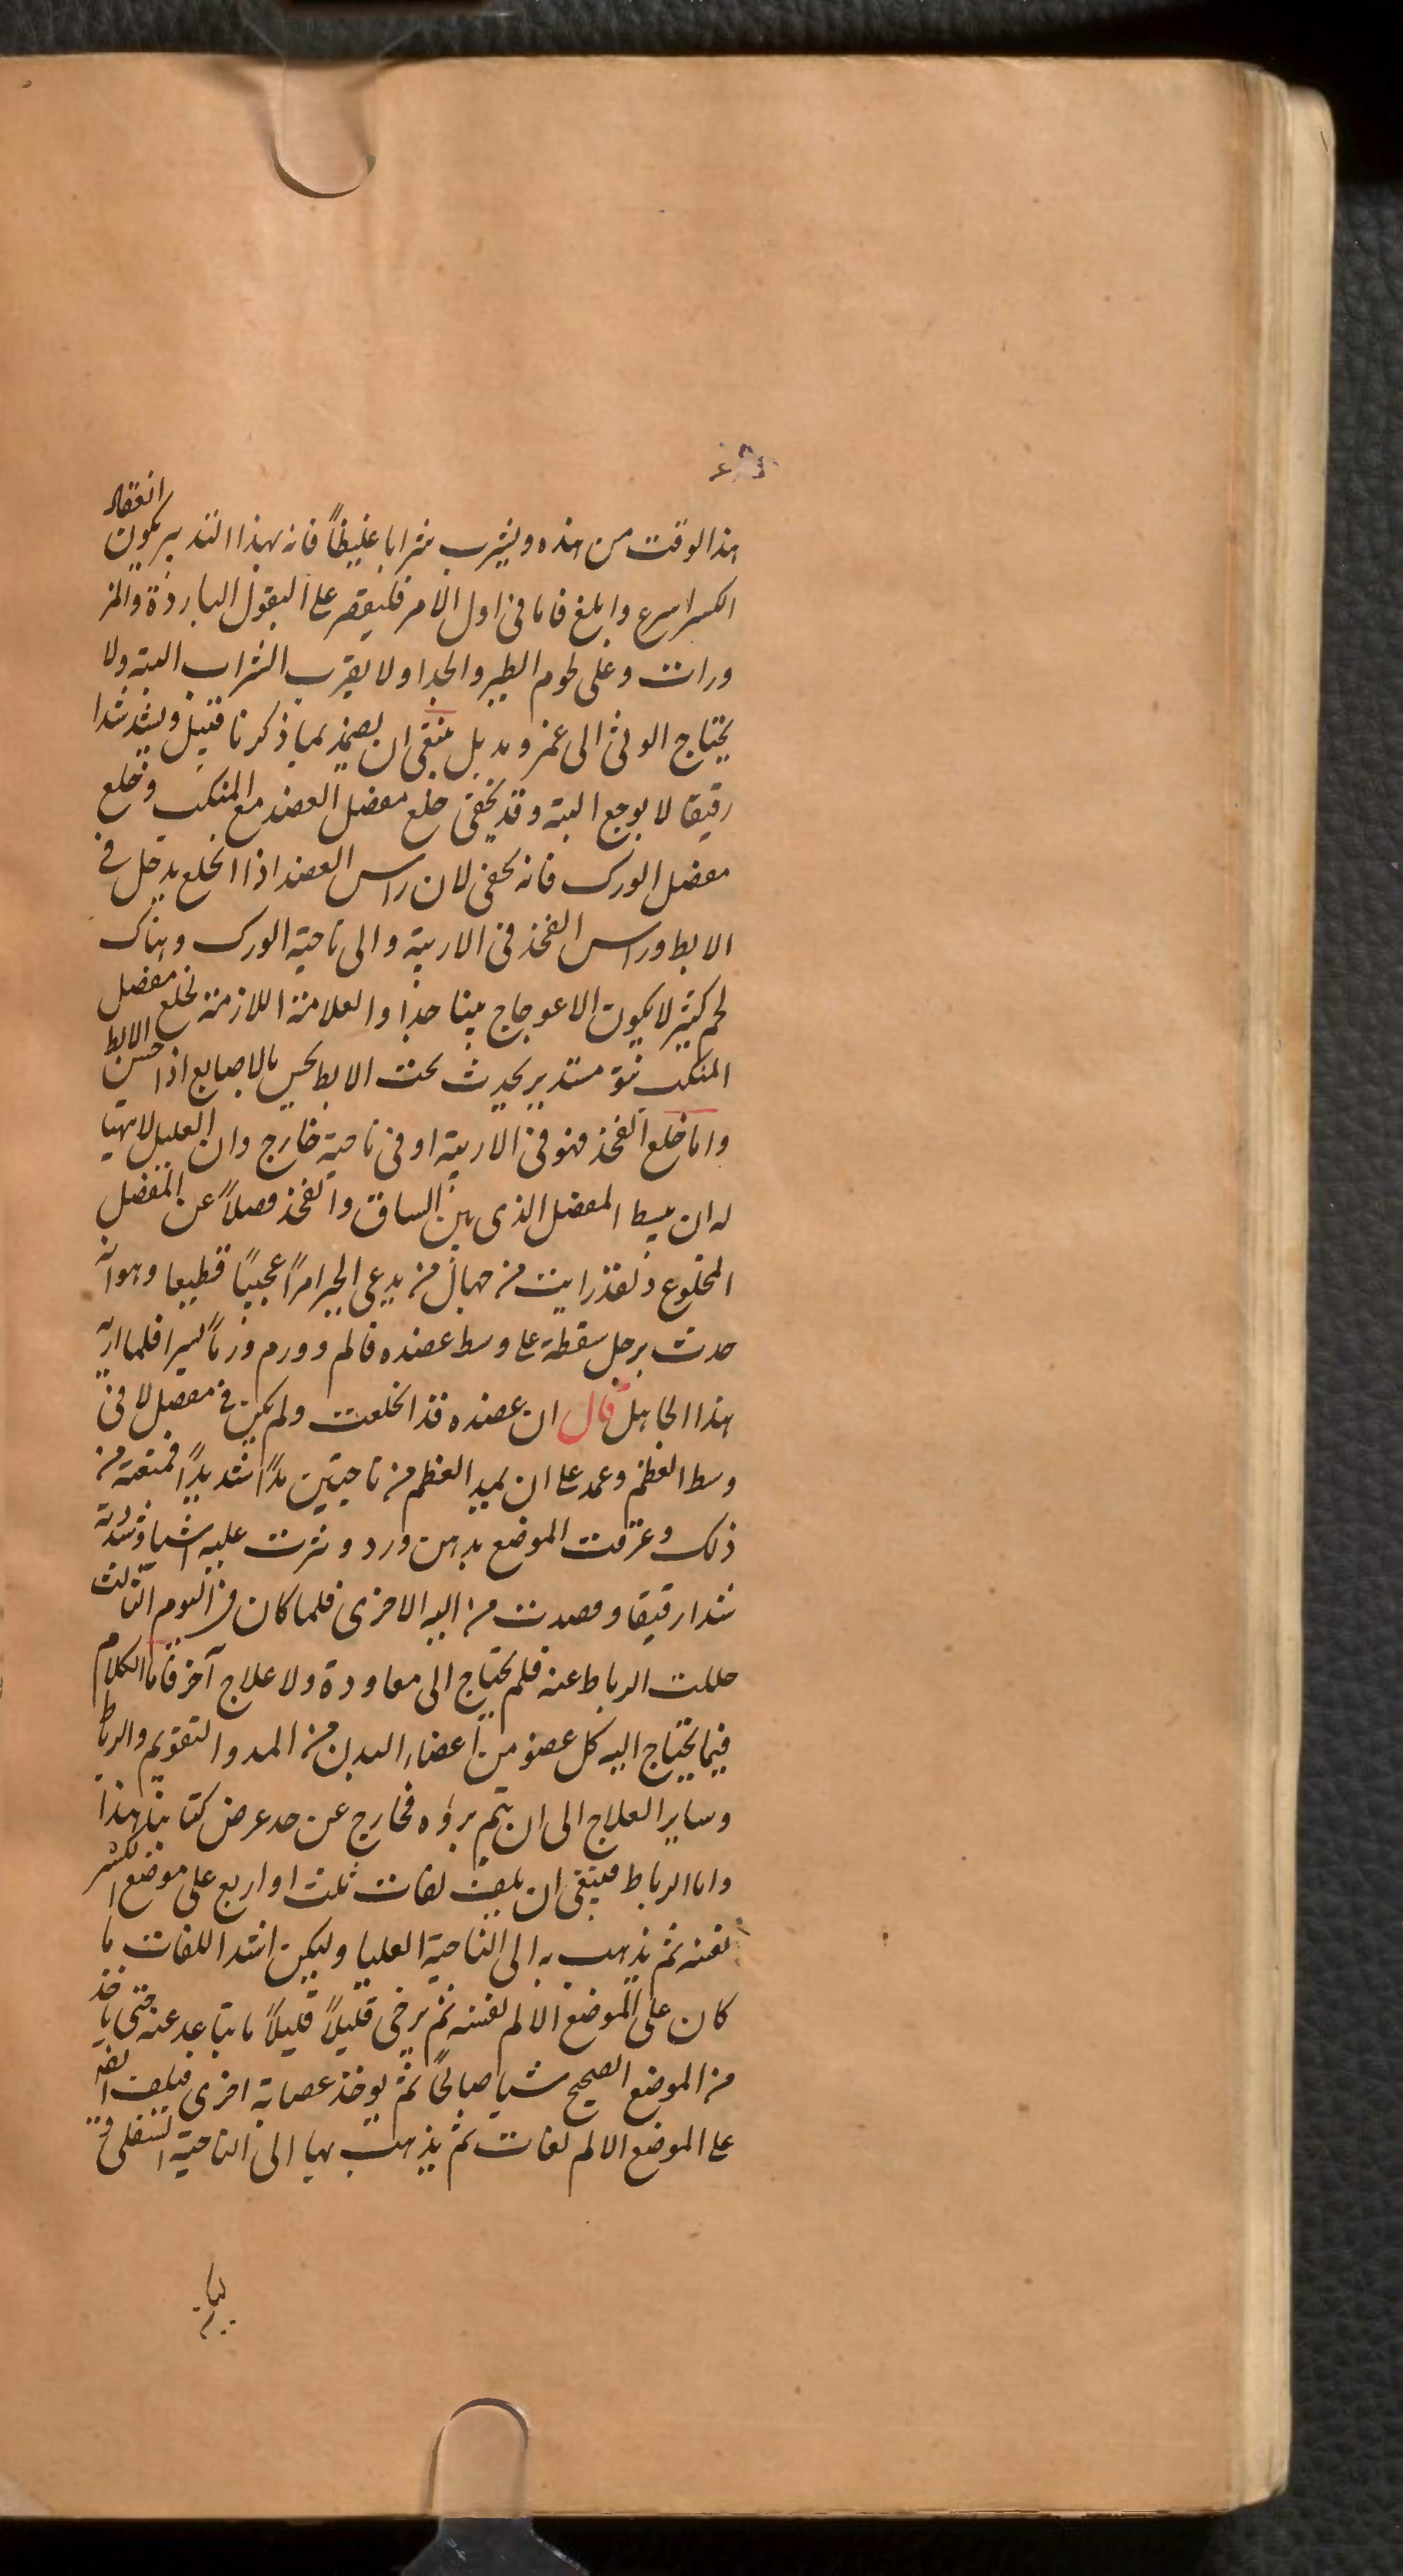 هذا الوقت من هذه ويشرب شرابا غليظاً فانه بهذا التدبير يكون انعقاد
الكسر اسرع وابلغ فاما فى اول الامر فليقتصر على البقول الباردة والمز
ورات وعلى لحوم الطير والجدا ولا يقرب الشراب البتة ولا
يحتاج الوثى الى غمز ومد بل ينبغى ان يضمد بما ذكرنا قبيل ويشد شدا
رقيقا لا يوجع البتة وقد يخفى خلع مفصل العضد مع المنكب وخلع
مفصل الورك فانه يخفى لان راس العضد اذا انخلع يدخل فى
الابط وراس الفخذ فى الاربية والى ناحية الورك وهناك
لحم كثير لا يكون الاعوجاج بينا جداً والعلامة اللازمة لخلع مفصل
المنكب نتو مستدير يحدث تحت الابط يحس بالاصابع اذا جس الابط
واما خلع الفخذ فهو فى الاربية او فى ناحية خارج وان العليل لا يتهيا
له ان يبسط المفصل الذى بين الساق والفخذ فصلاً عن المفصل
المخلوع ولقد رايت من جهال من يدعى الجبر امراً عجيباً قطيعا وهو انه
حدث برجل سقطة على وسط عضده فالم وورم ورماً يسيرا فلما اريه
هذا الجاهل قال ان عضده قد انخلعت ولم يكن فى مفصل لا فى
وسط العظم وعمد على ان يمد العظم من ناحيتين مداً شديداً فمنعته من
ذلك وعرقت الموضع بدهن ورد ونثرت عليه اشيا وشددته
شدا رقيقا وفصدت من اليد الاخرى فلما كان فى اليوم الثالث
حللت الرباط عنه فلم يحتاج الى معاودة ولا علاج آخر فاما الكلام
فيما يحتاج اليه كل عضو من اعضاء البدن من المد والتقويم والرباط
وساير العلاج الى ان يتم برؤه فخارج عن حد عرض كتابنا هذا
واما الرباط فينبغى ان يلف لفات ثلث او اربع على موضع الكسر
نفسه ثم يذهب به الى الناحية العليا وليكن اشد اللفات ما
كان على الموضع الالم نفسه ثم يرخى قليلاً قليلاً ما يتباعد عنه حتى ياخذ
من الموضع الصحيح شيا صالحاً ثم يوخذ عصابة اخرى فيلف ايضا
على الموضع الالم لفات ثم يذهب بها الى الناحية السفلى